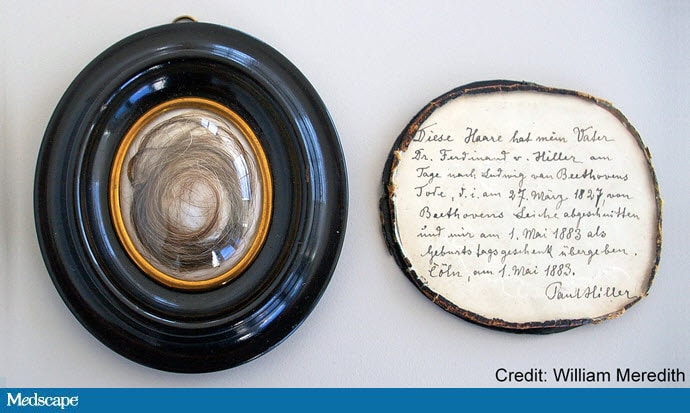 Diese Haare hat mein Vater
Dr. Ferdinand v. Hiller am
Tage nach Ludwig van Beethovens
Tode, d. i. am 27. März 1827, von
Beethovens Leiche abgeschnitten
und mir am 1. Mai 1883 als
Geburtstagsgeschenk übergeben.
Cöln, am 1. Mai 1883.
Paul Hiller
Credit: William Meredith
Medscape